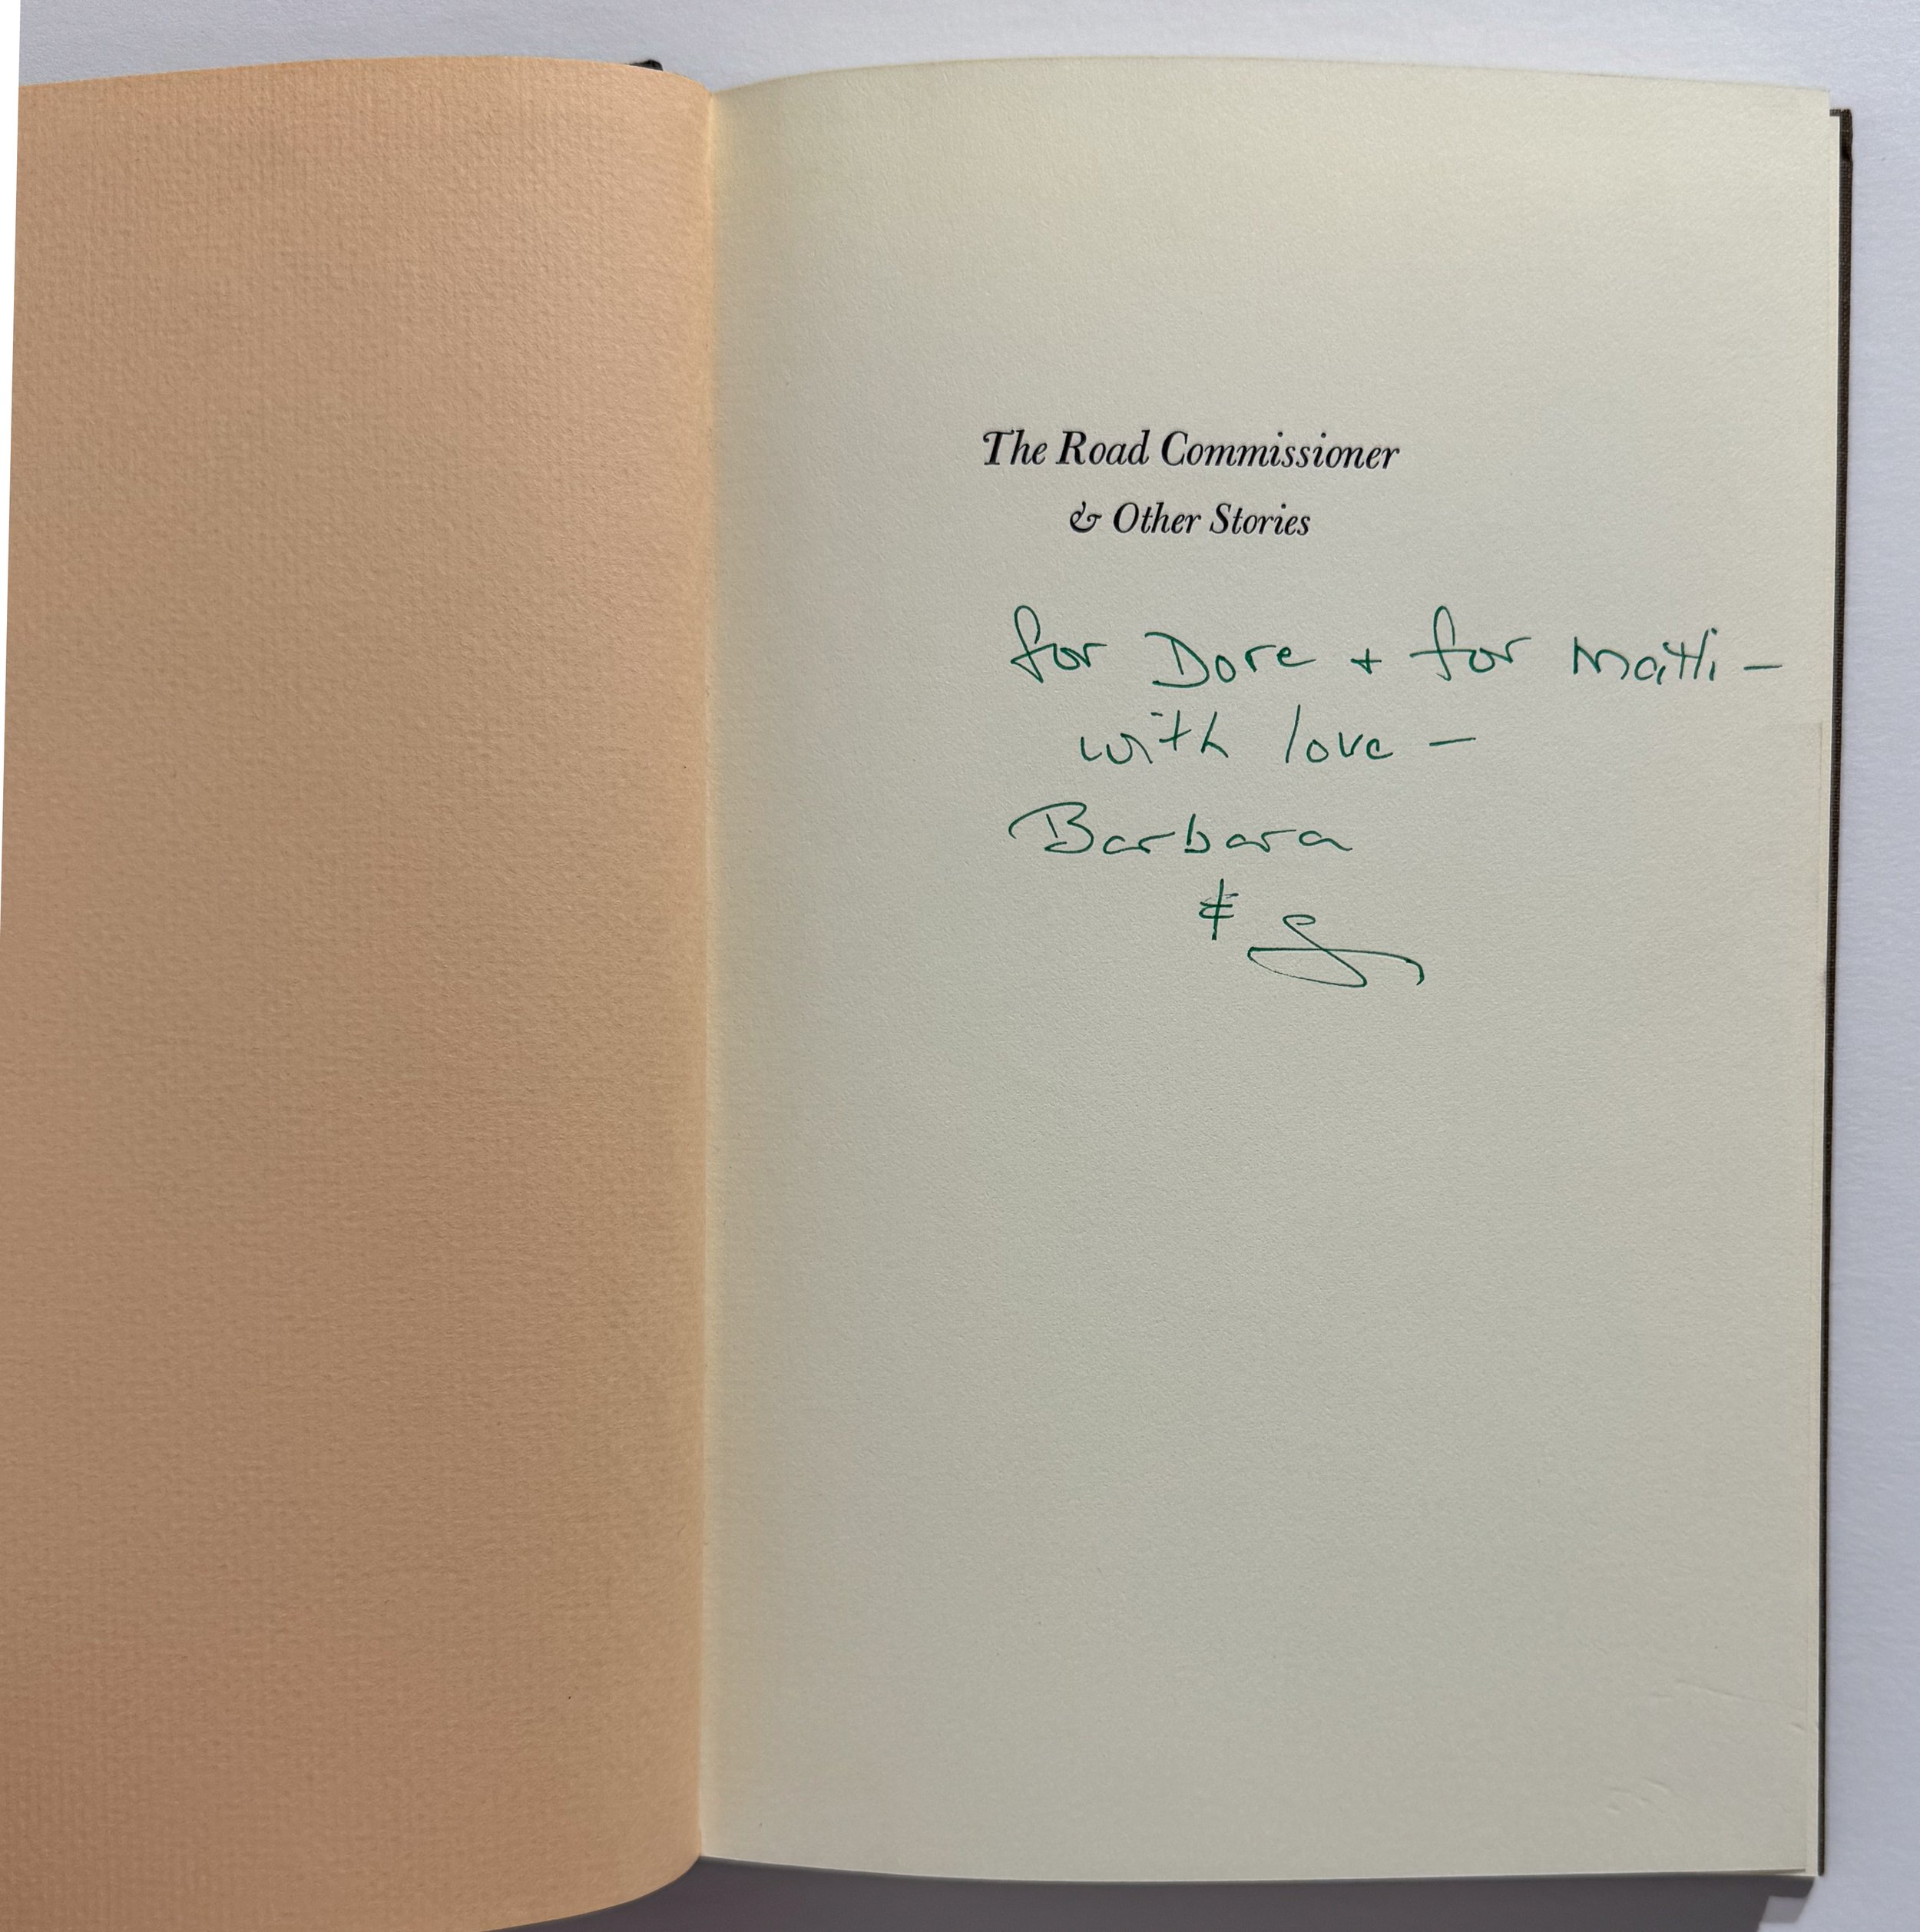 The Road Commissioner
& Other Stories
for Dore + for Matti –
with love –
Barbara
&